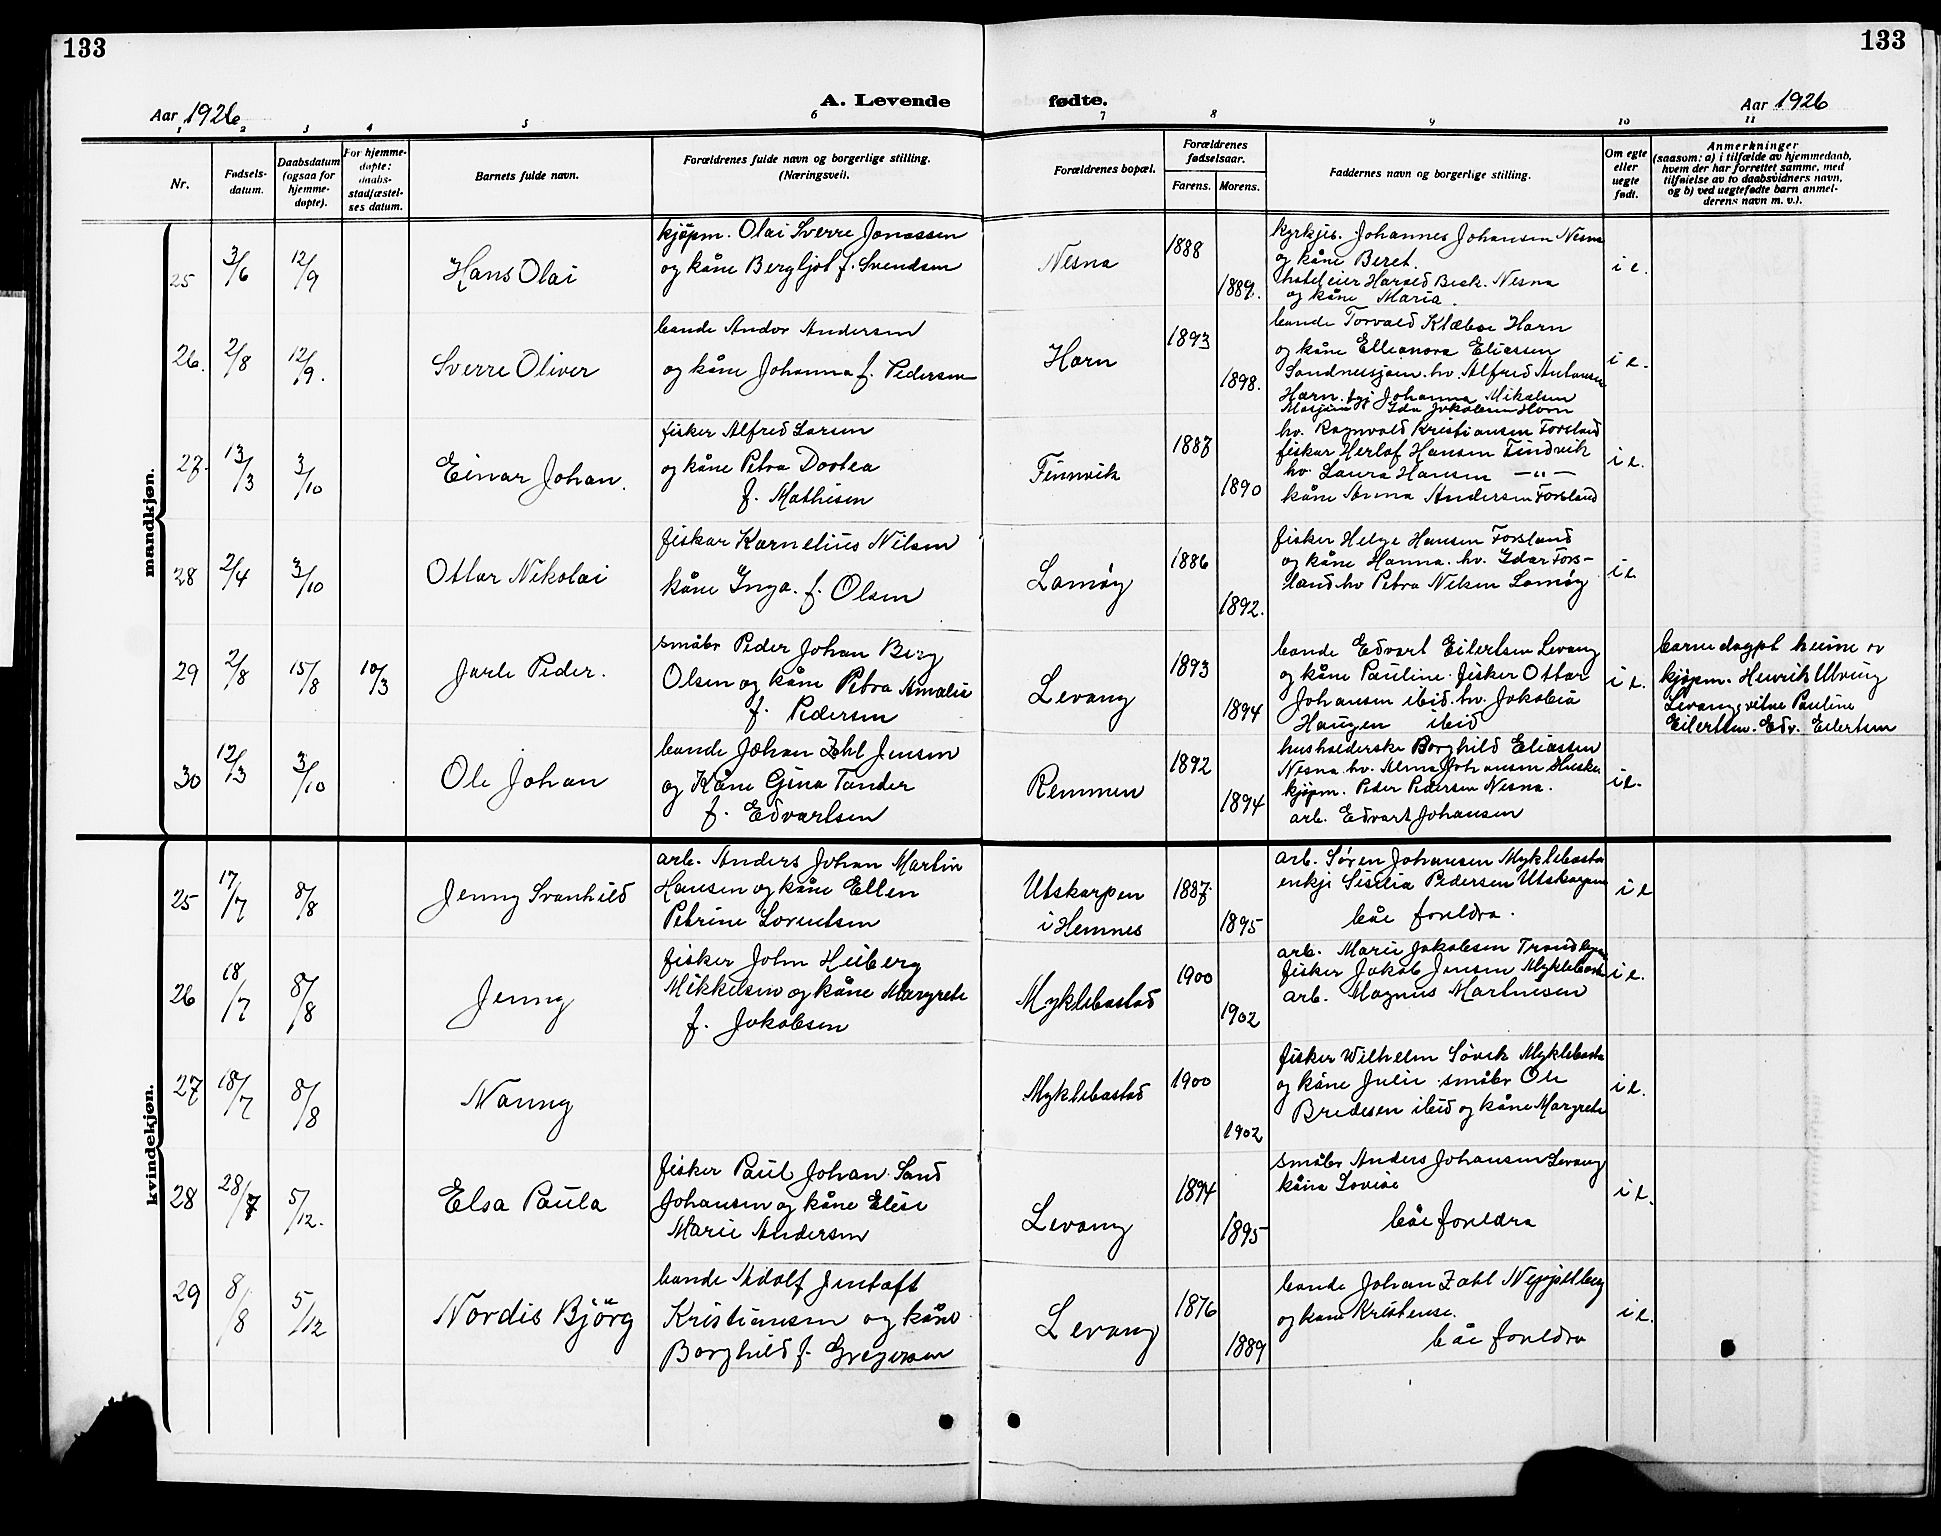 133
133
Aar 1926
A. Levende
fødte.
Aar 1926
1 2 3 4 5 6 7 8 9 10 11
Nr.
Fødsels-
datum.
Daabsdatum
(ogsaa for
hjemme-
døpte).
For hjemme-
døpte:
daabs-
stadfæstel-
ses datum.
Barnets fulde navn.
Forældrenes fulde navn og borgerlige stilling.
(Næringsvei).
Forældrenes bopæl.
Forældrenes
fødselsaar.
Farens.
Morens.
Faddernes navn og borgerlige stilling.
Om egte
eller
uegte
født.
Anmerkninger
(saasom: a) i tilfælde av hjemmedaab,
hvem der har forrettet samme, med
tilføielse av to daabsvidners navn,
og b) ved uegtefødte barn anmel-
derens navn m. v.).
mandkjøn.
25
3/6
12/9
Hans Olai
kjøpm. Olai Sverre Jonassen
og kåne Bergljot f. Svendsen
Nesna
1888
1889.
kyrkjes. Johannes Johansen Nesna
og kåne Beret.
hoteleier Harald Beck. Nesna
og kåne Maria.
i e.
26.
2/8
12/9.
Sverre Oliver
bonde Andor Andersen
og kåne Johanna f. Pedersen
Horn
1893
1898.
bonde Torvald Klæboe Horn
og kåne Elleonora Eliassen
Sandnessjøen. hv. Alfred Antonsen
Horn. tgj Johanna Mikalsen
Mosjøen Ida Jakobsen Horn
i e.
27.
13/3
3/10
Einar Johan.
fisker Alfred Larsen
og kåne Petra Dortea
f. Mathisen
Finnvik
1887
1890
hv. Ragnvald Kristiansen Forsland
fiskar Herlof Hansen Findvik
hv. Laura Hansen — " —
kåne Anna Andersen Forsland
i e.
28
2/4
3/10
Ottar Nikolai
fiskar Kornelius Nilsen
kåne Inga. f. Olsen
Lamøy
1886
1892.
fisker Helge Hansen Forsland
og kåne Hanna. hv. Idar Fors-
land hv Petra Nilsen Lamøy
i e.
29
2/8
15/8
10/3
Jarle Peder.
småbr Peder Johan Berg
Olsen og kåne Petra Amalie
f. Pedersen
Levang
1893
1894
bonde Edvart Eilertsen Levang
og kåne Pauline. fisker Ottar
Johansen ibid. hv. Jakobia
Haugen ibid
i e.
barnedøypt heime av
kjøpm. Henrik Ulvung
Levang, vitne Pauline
Eilertsen. Edv. Eilertsen
30
12/3
3/10
Ole Johan
bonde Johan Zahl Jensen
og Kåne Gina Tander
f. Edvartsen
Remmen
1892
1894
husholderske Borghild Eliassen
Nesna. hv. Alma Johansen
kjøpm. Peder Pedersen Nesna.
arb. Edvart Johansen
i e.
kvindekjøn.
25
17/7
8/8
Jenny Svanhild
arb. Anders Johan Martin
Hansen og kåne Ellen
Petrine Lorentsen
Utskarpen
i Hemnes
1887.
1895
arb. Søren Johansen Myklebostad
enkje Sisilia Pedersen Utskarpen
båe foreldra.
i e
26
18/7
8/8
Jenny
fisker John Heiberg
Mikkelsen og kåne Margrete
f. Jakobsen
Myklebostad
1900
1902
arb. Marie Jakobsen
fisker Jakob Jensen Myklebostad
arb. Magnus Martinesen
i e.
27
18/7
8/8
Nanny
Myklebostad
1900
1902
fisker Wilhelm Søvik Myklebostad
og kåne Julie. småbr Ole
Bredesen ibid og kåne Margrete
i e.
28
28/7
5/12.
Elsa Paula
fisker Paul Johan Sand
Johansen og kåne Elise
Marie Andersen
Levang
1894
1895
småbr Anders Johansen Levang
kåna Lovise
båe foreldra
i e.
29
8/8
5/12
Nordis Björg
bonde Adolf Jentoft
Kristiansen og kåne
Borghild f. Gregersen
Levang
1876
1889
bonde Johan Zahl
og kone Kristense.
båe foreldra
i e.